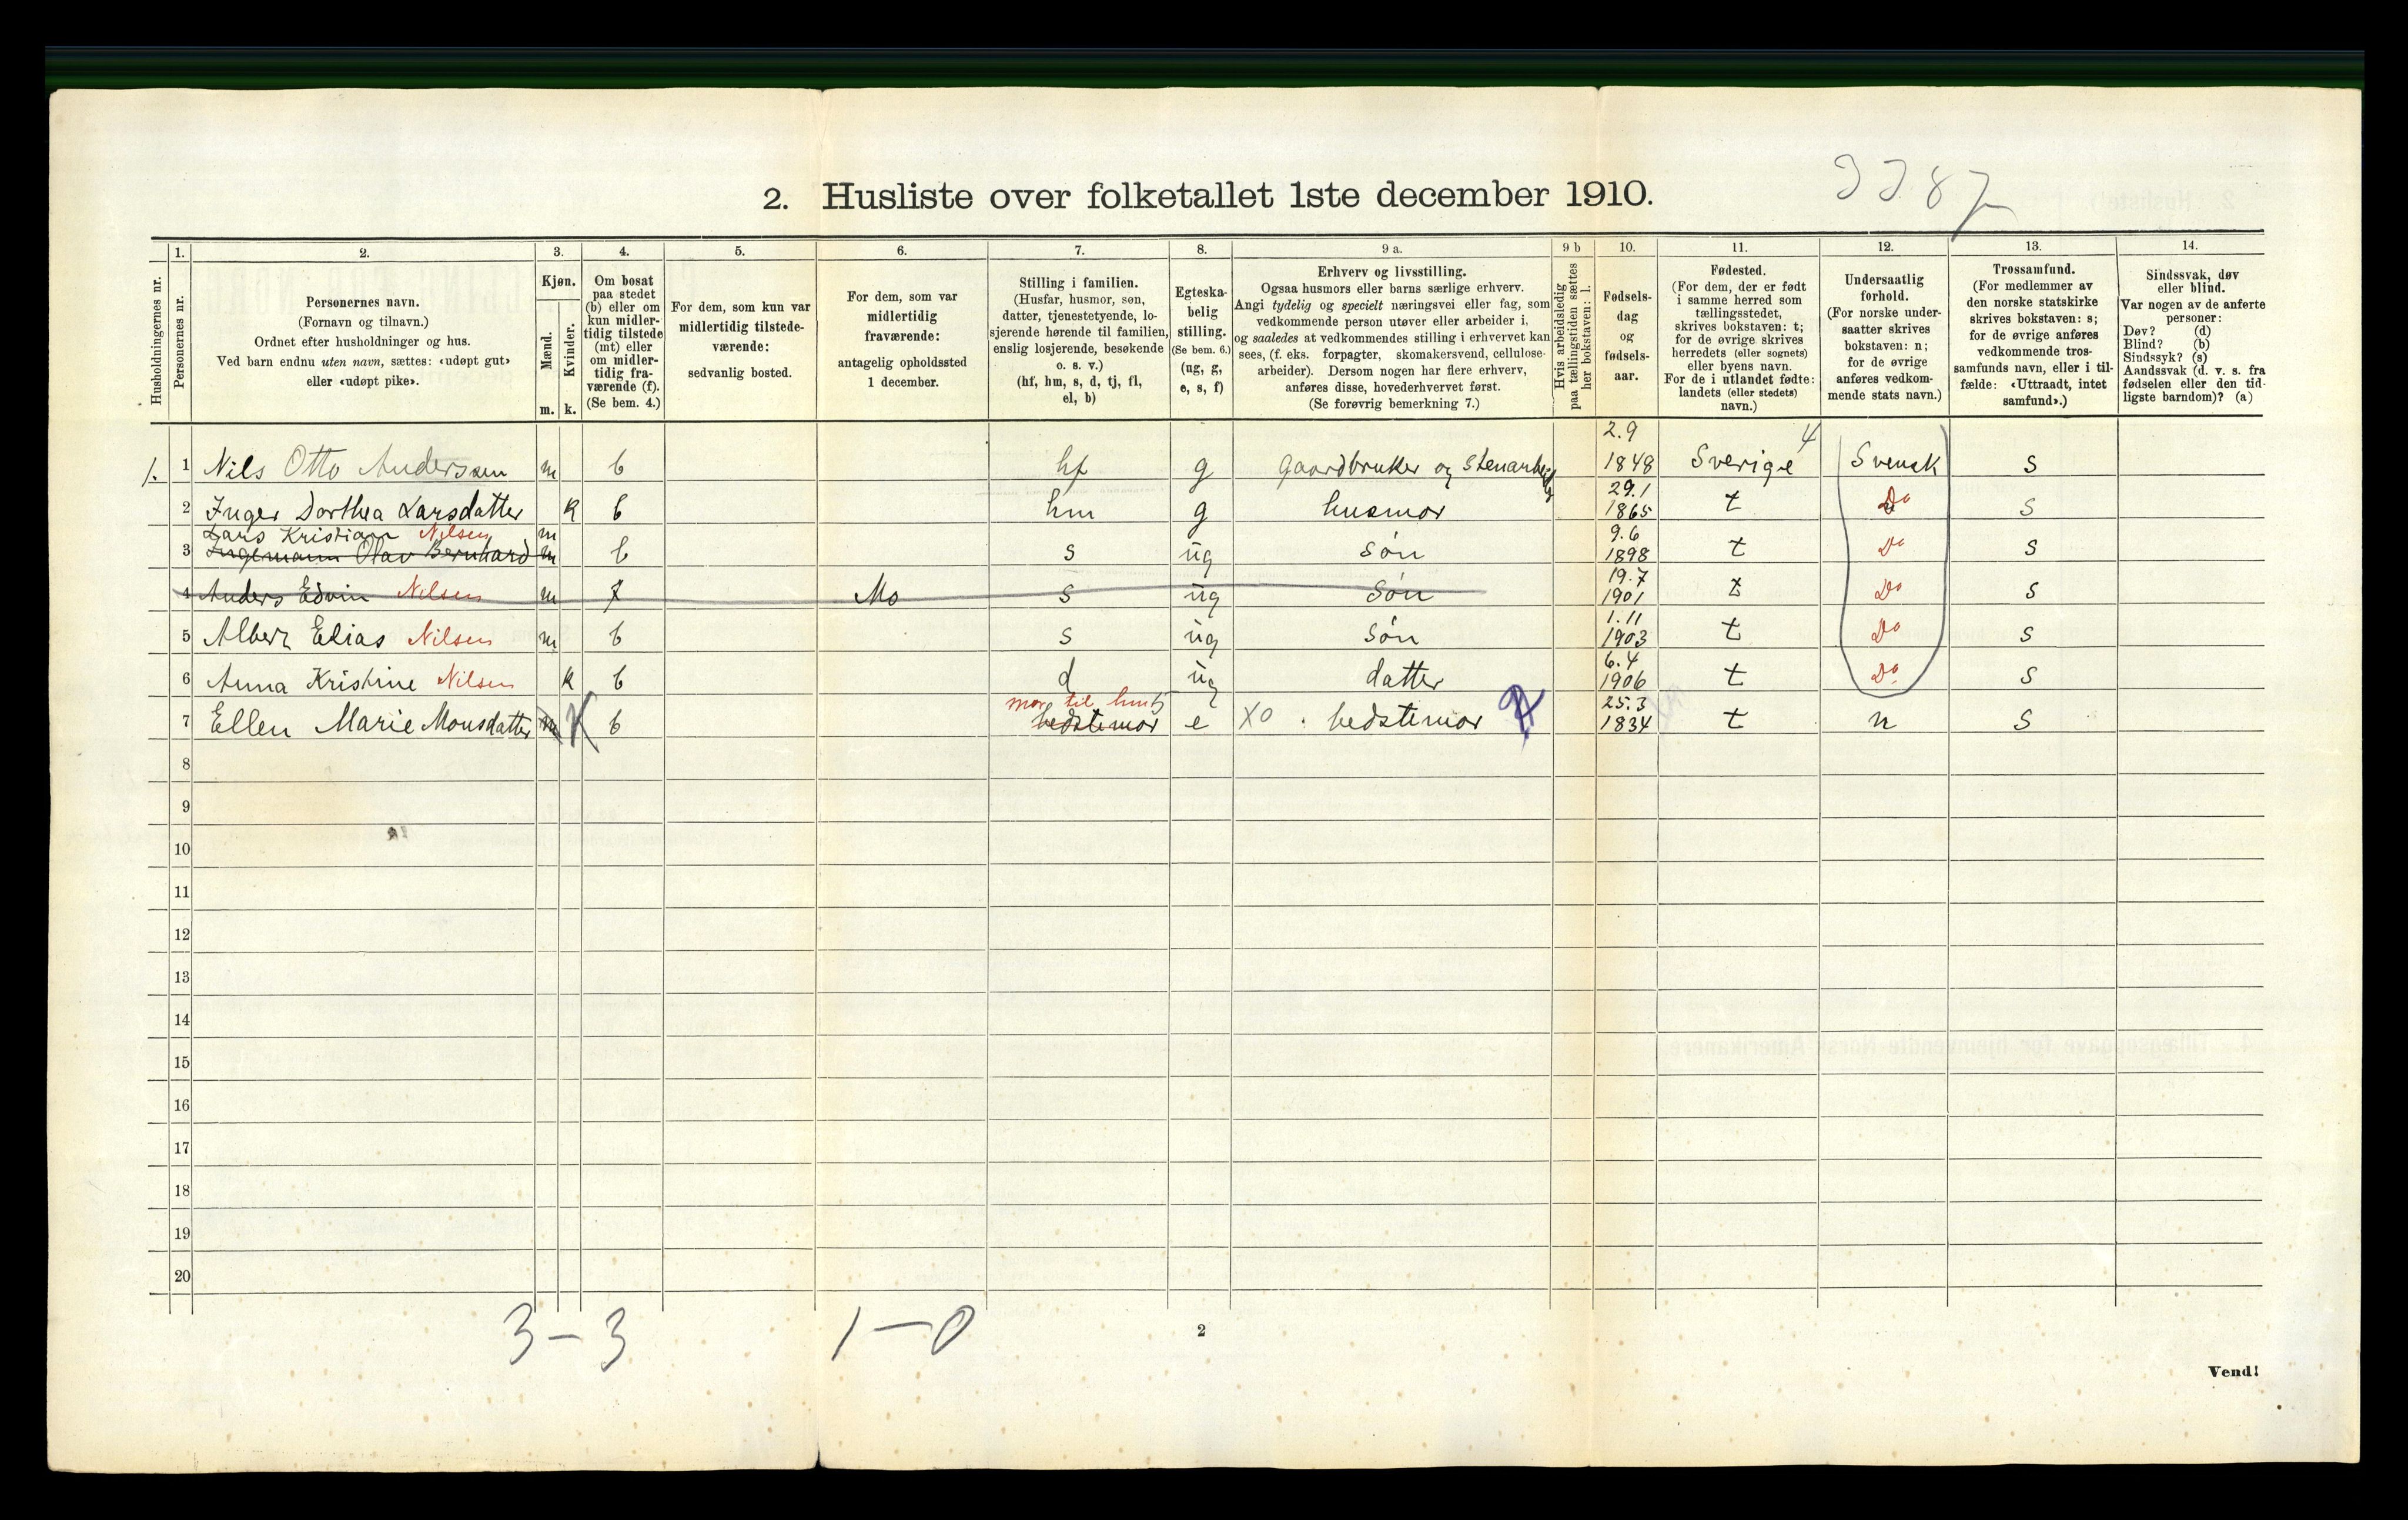 2. Husliste over folketallet 1ste december 1910.
Husholdningernes nr.
1.
Personernes nr.
2.
Personernes navn.
(Fornavn og tilnavn.)
Ordnet efter husholdninger og hus.
Ved barn endnu uten navn, sættes: «udøpt gut»
eller «udøpt pike».
3.
Kjøn.
Mænd.
Kvinder.
m. k.
4.
Om bosat
paa stedet
(b) eller om
kun midler-
tidig tilstede
(mt) eller
om midler-
tidig fra-
værende (f).
(Se bem. 4.)
5.
For dem, som kun var
midlertidig tilstede-
værende:
sedvanlig bosted.
6.
For dem, som var
midlertidig
fraværende:
antagelig opholdssted
1 december.
7.
Stilling i familien.
(Husfar, husmor, søn,
datter, tjenestetyende, lo-
sjerende hørende til familien,
enslig losjerende, besøkende
o. s. v.)
(hf, hm, s, d, tj, fl,
el, b)
8.
Egteska-
belig
stilling.
(Se bem. 6.)
(ug, g,
e, s, f)
9 a.
Erhverv og livsstilling.
Ogsaa husmors eller barns særlige erhverv.
Angi tydelig og specielt næringsvei eller fag, som
vedkommende person utøver eller arbeider i,
og saaledes at vedkommendes stilling i erhvervet kan
sees, (f. eks. forpagter, skomakersvend, cellulose-
arbeider). Dersom nogen har flere erhverv,
anføres disse, hovederhvervet først.
(Se forøvrig bemerkning 7.)
9 b
Hvis arbeidsledig
paa tællingstiden sættes
her bokstaven: l.
10.
Fødsels-
dag
og
fødsels-
aar.
11.
Fødested.
(For dem, der er født
i samme herred som
tællingsstedet,
skrives bokstaven: t;
for de øvrige skrives
herredets (eller sognets)
eller byens navn.
For de i utlandet fødte:
landets (eller stedets)
navn.)
12.
Undersaatlig
forhold.
(For norske under-
saatter skrives
bokstaven: n;
for de øvrige
anføres vedkom-
mende stats navn.)
13.
Trossamfund.
(For medlemmer av
den norske statskirke
skrives bokstaven: s;
for de øvrige anføres
vedkommende tros-
samfunds navn, eller i til-
fælde: «Uttraadt, intet
samfund».)
14.
Sindssvak, døv
eller blind.
Var nogen av de anførte
personer:
Døv? (d)
Blind? (b)
Sindssyk? (s)
Aandssvak (d. v. s. fra
fødselen eller den tid-
ligste barndom)? (a)
1. 1 Nils Otto Anderssen m b hf g gaardbruker og Stenarbeider 2.9 1848 Sverige 4 Svensk s
2 Inger Dorthea Larsdatter k b hm g husmor 29.1 1865 t Do s
Lars Kristian Nilsen m
3 Ingemann Olav Bernhard m b s ug søn 9.6 1898 t Do s
4 Anders Edvin Nilsen m f Mo s ug søn 19.7 1901 t Do s
5 Albert Elias Nilsen m b s ug søn 1.11 1903 t Do s
6 Anna Kristine Nilsen k b d ug datter 6.4 1906 t Do s
mor til hm
7 Ellen Marie Monsdatter m K b bedstemor e X0 bedstemor 25.3 1834 t n s
8
9
10
11
12
13
14
15
16
17
18
19
20
3 - 3 1 - 0
2
Vend!